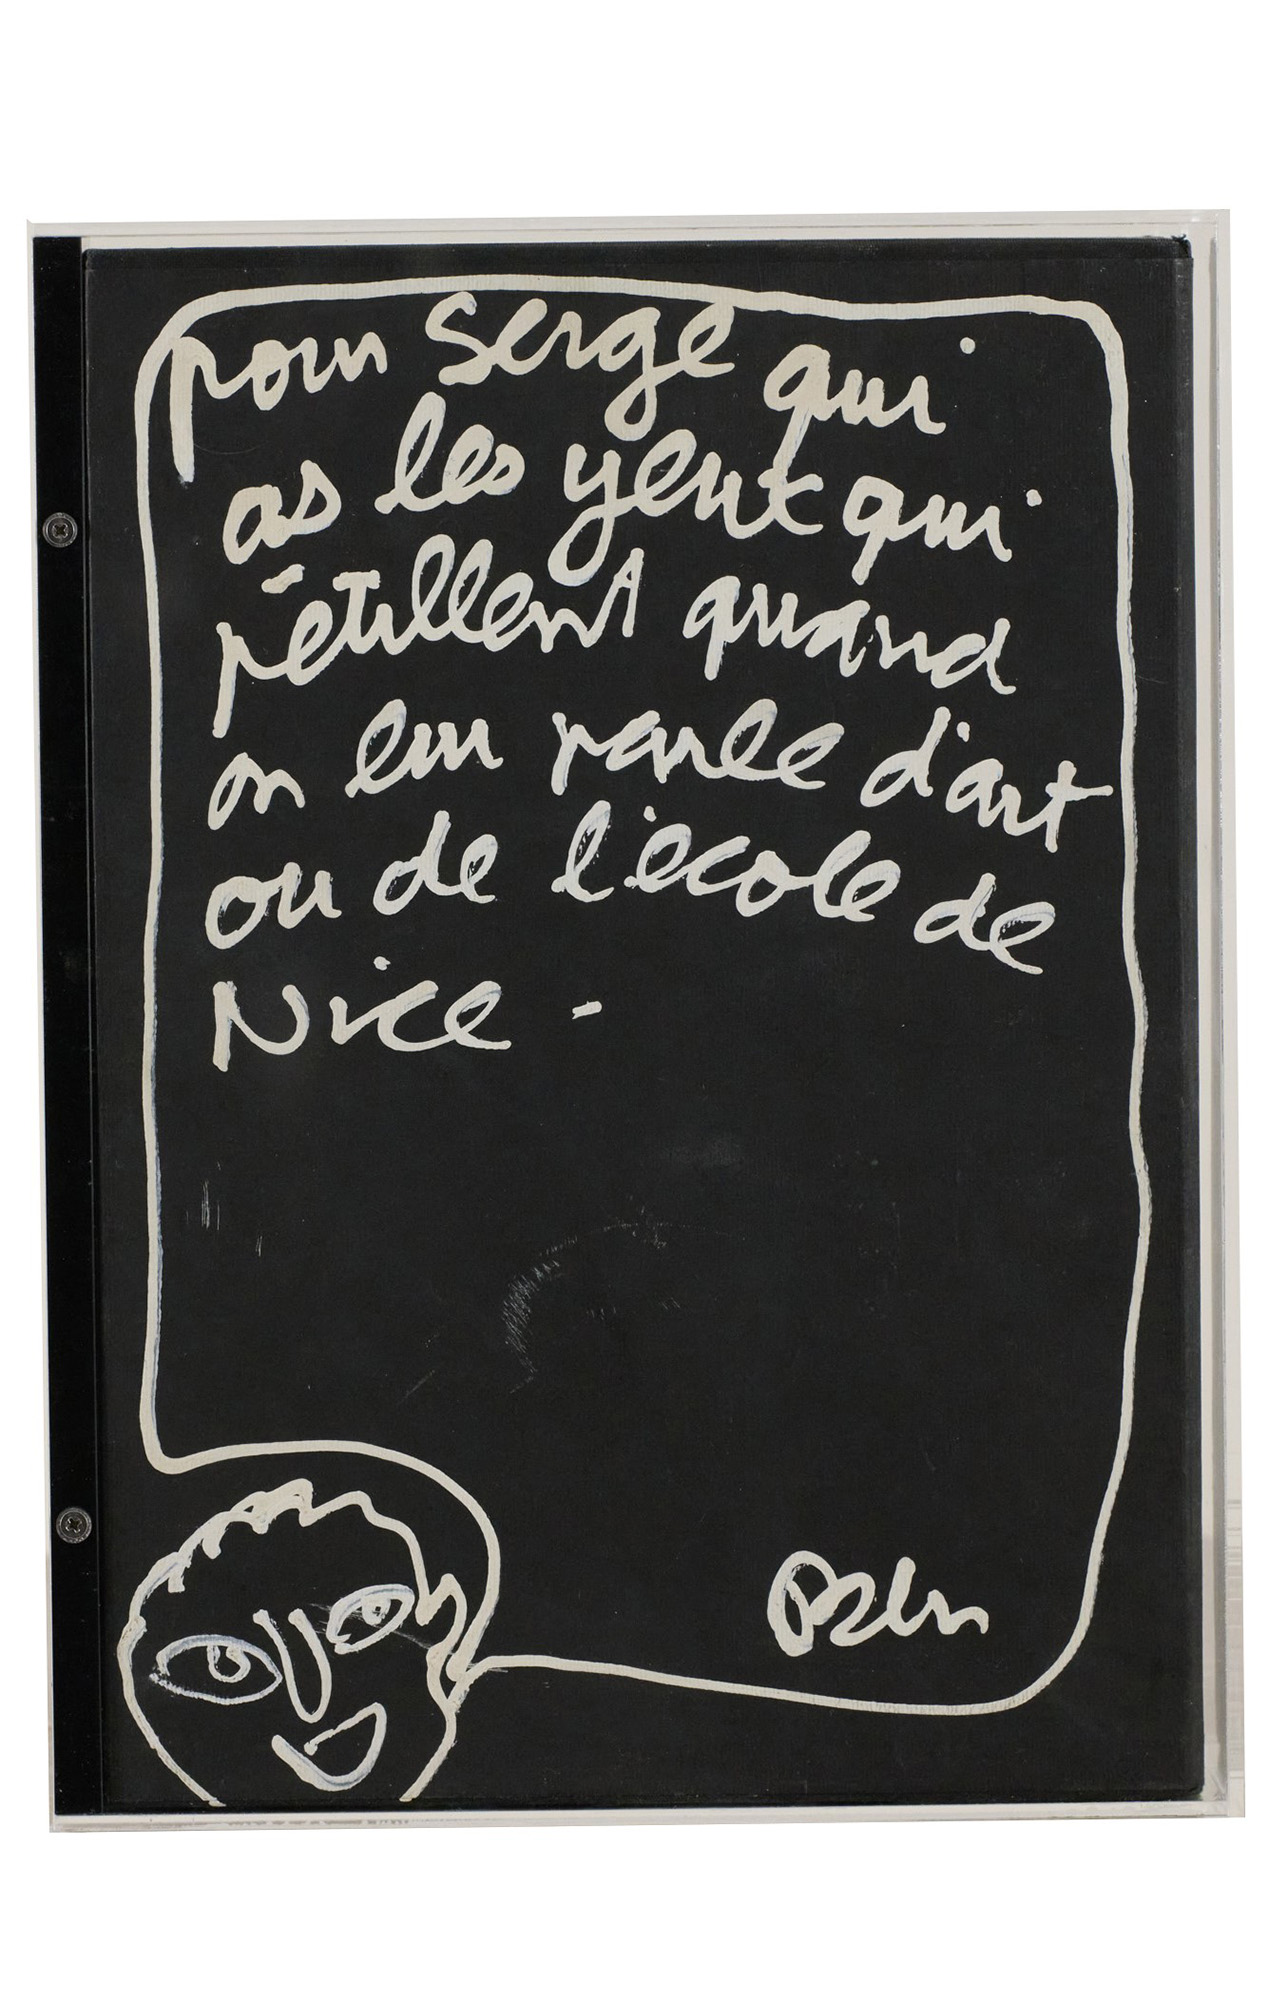 pour Serge qui
as les yeux qui
pétillent quand
on leur parle d'art
ou de l'école de
Nice -
Ben